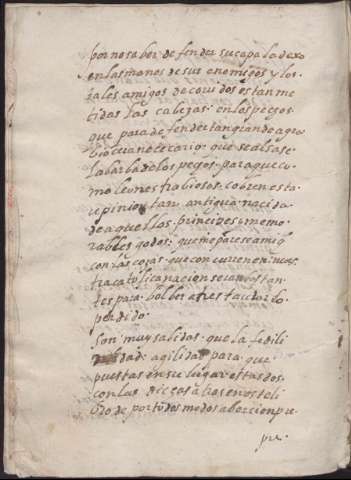 por no saber defender su capa la dexo
en las manos de sus enemigos y los
tales amigos de covidos estan me
tidas las cabezas en los pechos
que para defender tan grande agra
bio era necesario que se alsase
la barba de los pechos para que co
mo leones rabiosos cobren esta
opinion tan antigua nacida
de aquellos principes memo
rables godos que me parese a mi q
con las cosas que concurren en nues
tra catolica nacion seran vastan
tes para bolber a restaurar lo
perdido.
Son muy sabidas que la fedili
dad agilidad para que
puestas en su lugar estas dos
con las
do de por todos modos aborrecimie